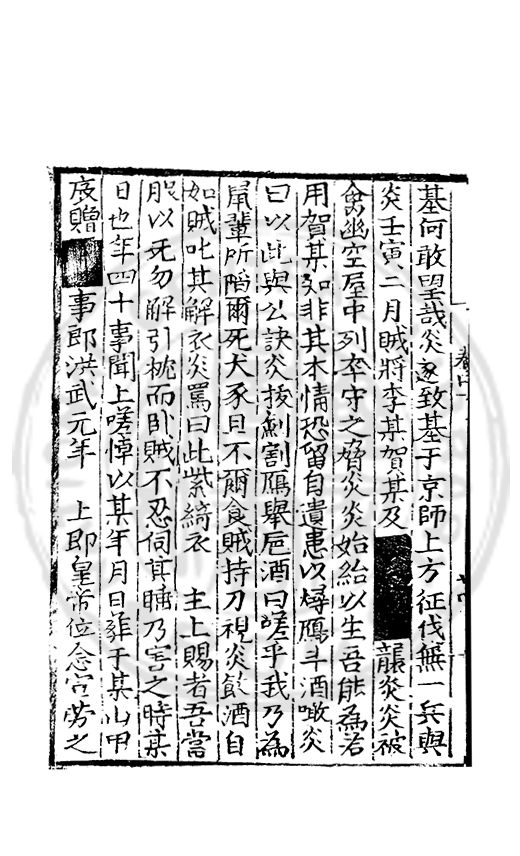 基何敢望哉炎遂致基于京師上方征伐無一兵與
炎壬寅二月賊將李某賀某及 襲炎炎被
禽幽空屋中列卒守之脅炎炎始紿以生吾能為若
用賀某知非其本情恐留自遺患以燖鴈斗酒啖炎
曰以此與公訣炎拔劍割鴈舉巵酒曰嗟乎我乃為
鼠輩所陷爾死犬豕且不爾食賊持刀視炎飲酒自
如賊叱其解衣炎罵曰此紫綺衣 主上賜者吾當
服以死勿解引枕而卧賊不忍伺其睡乃害之時某
日也年四十事聞上嗟悼以某年月日葬于某山甲
庚贈 事郎洪武元年 上即皇帝位念守勞之
卷四